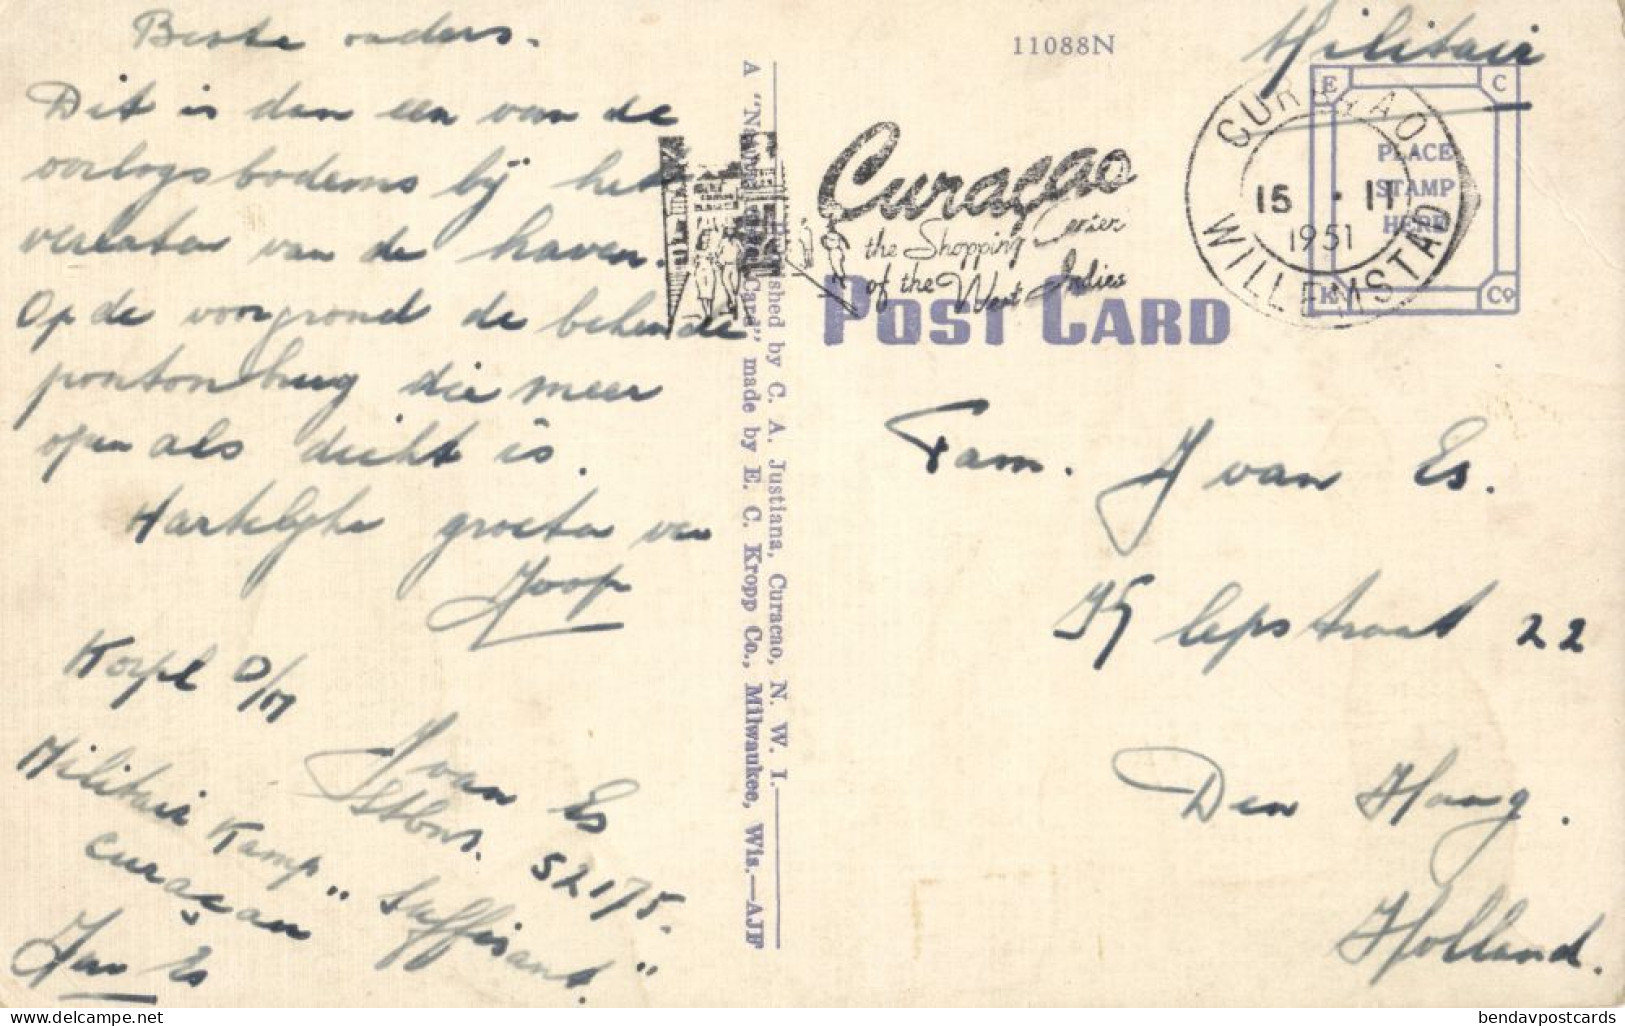 Beste ouders.
Dit is dan een van de
oorlogsbodems bij het
verlaten van de haven.
Op de voorgrond de bekende
pontonbrug die meer
open als dicht is.
Hartelijke groeten van
Joop
Korpl D/M
J van Es
Stbnr. 52175.
Militair Kamp „Suffisant"
Curaçao
J van Es
A "Natural Card" made by E. C. Kropp Co., Milwaukee, Wis.—AJF
Published by C. A. Justiana, Curacao, N. W. I.
11088N
Militair
Curaçao
the Shopping Center
of the West Indies
CURAÇAO
15 · 11
1951
WILLEMSTAD
E C
PLACE
STAMP
HERE
K Co
POST CARD
Fam. J van Es.
lepstraat 22
Den Haag.
Holland.
bendavpostcards